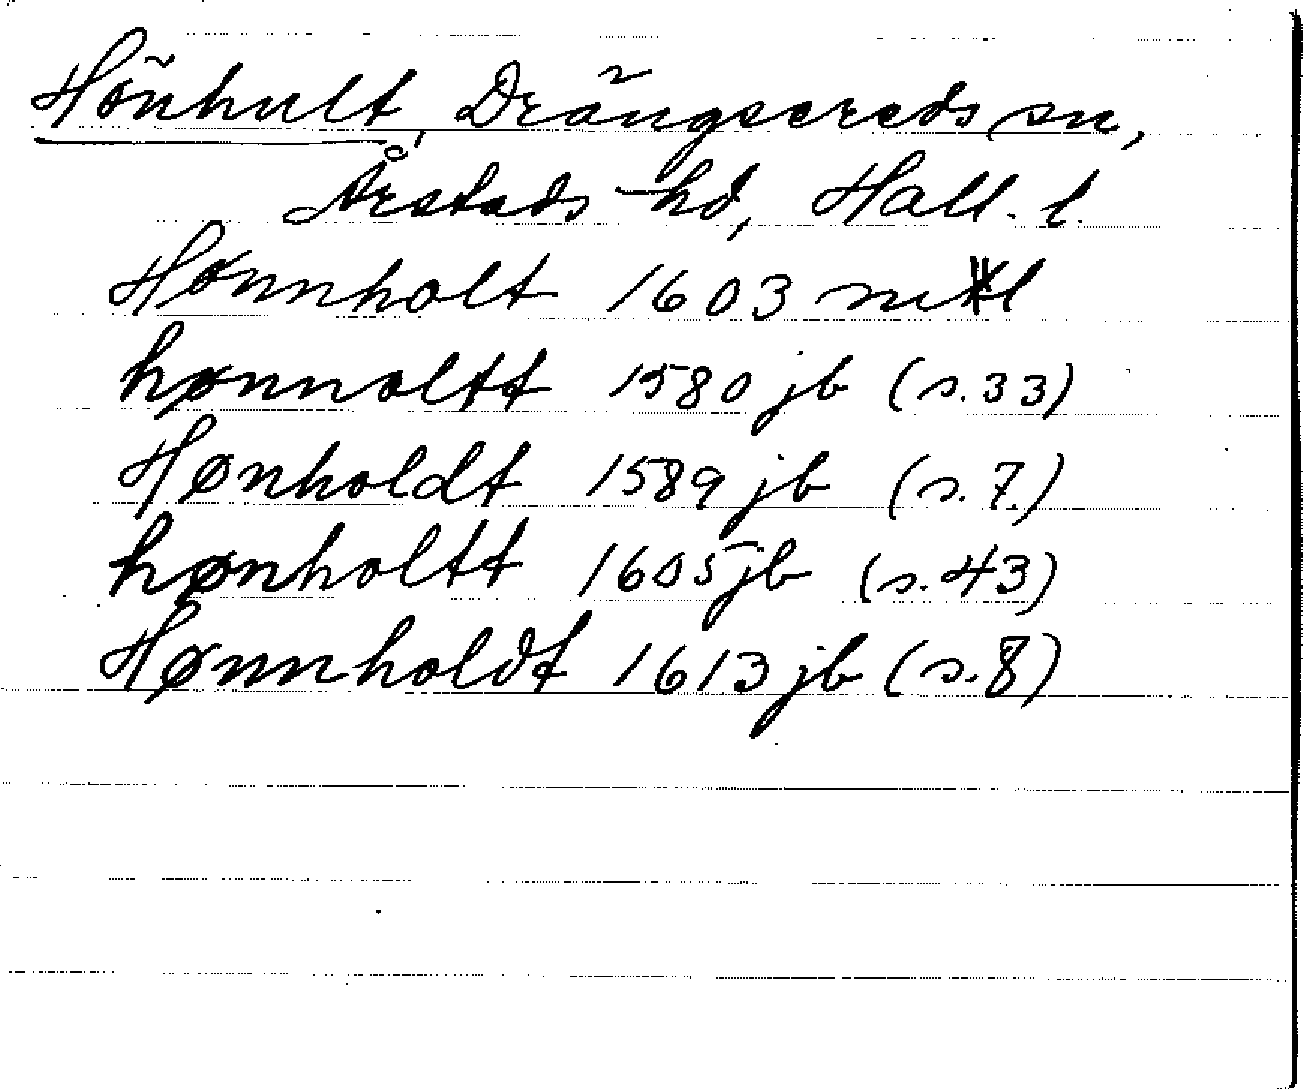 Hönhult, Drängsereds sn,
Årstads hd, Hall. l.
Hønnholt 1603 mtl
hønnoltt 1580 jb (s. 33)
Hønholdt 1589 jb (s. 7.)
hønholtt 1605 jb (s. 43)
Hønnholdt 1613 jb (s. 8)